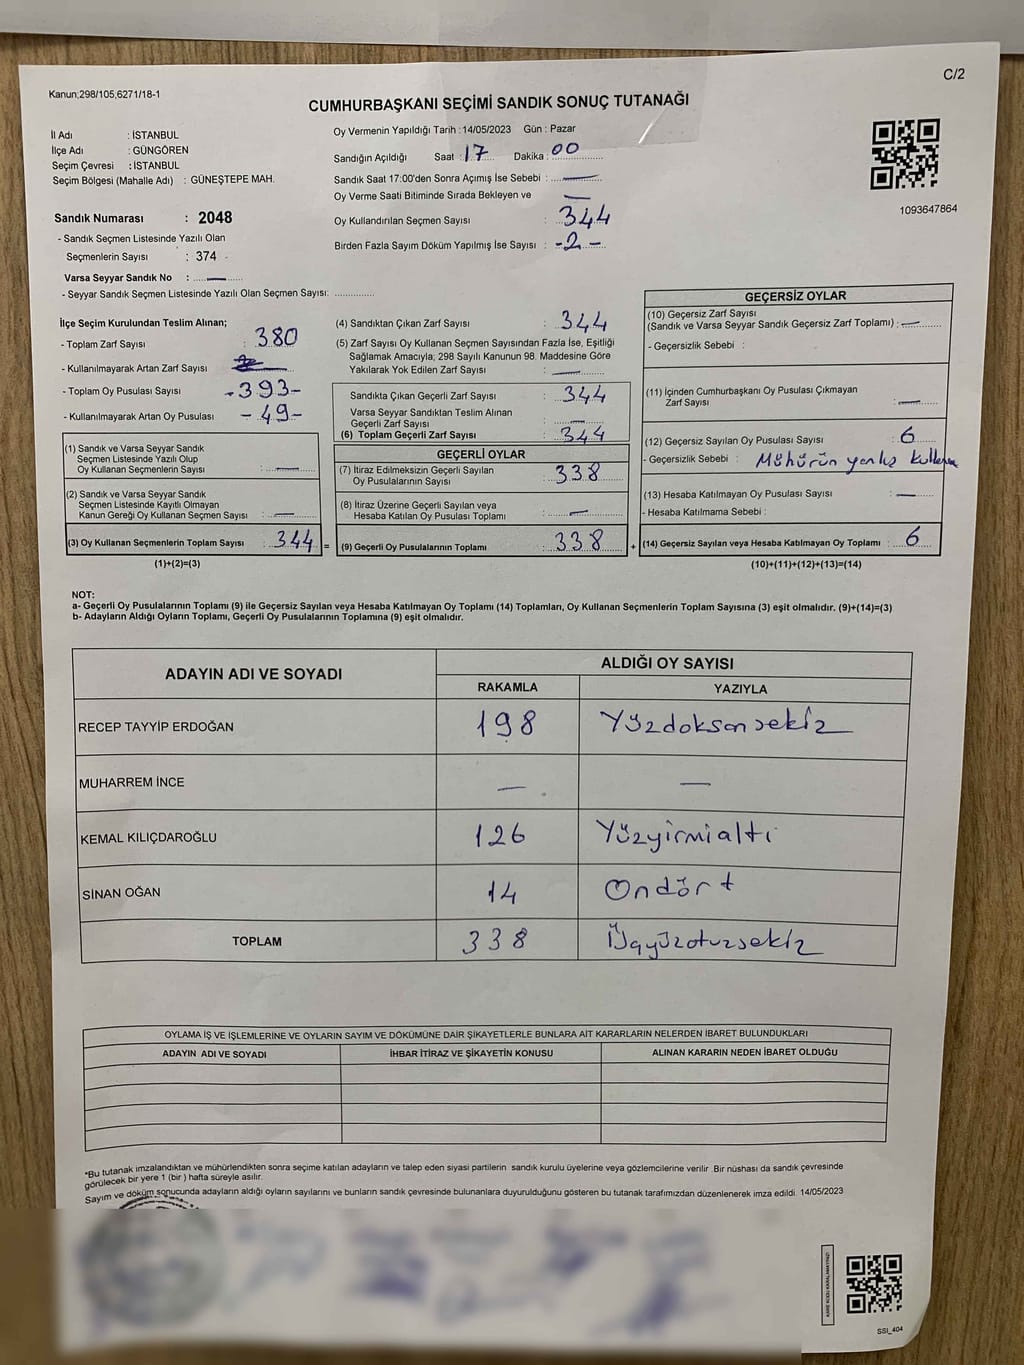 C/2
Kanun;298/105,6271/18-1
CUMHURBAŞKANI SEÇİMİ SANDIK SONUÇ TUTANAĞI
İl Adı : İSTANBUL
İlçe Adı : GÜNGÖREN
Seçim Çevresi : İSTANBUL
Seçim Bölgesi (Mahalle Adı) : GÜNEŞTEPE MAH.
Sandık Numarası : 2048
- Sandık Seçmen Listesinde Yazılı Olan
Seçmenlerin Sayısı : 374
Varsa Seyyar Sandık No : —
- Seyyar Sandık Seçmen Listesinde Yazılı Olan Seçmen Sayısı: ..............
Oy Vermenin Yapıldığı Tarih : 14/05/2023 Gün : Pazar
Sandığın Açıldığı Saat : 17 Dakika : 00
Sandık Saat 17:00'den Sonra Açımış İse Sebebi : —
Oy Verme Saati Bitiminde Sırada Bekleyen ve —
Oy Kullandırılan Seçmen Sayısı : 344
Birden Fazla Sayım Döküm Yapılmış İse Sayısı : -2-
1093647864
İlçe Seçim Kurulundan Teslim Alınan;
- Toplam Zarf Sayısı : 380
- Kullanılmayarak Artan Zarf Sayısı
- Toplam Oy Pusulası Sayısı -393-
- Kullanılmayarak Artan Oy Pusulası -49-
(1) Sandık ve Varsa Seyyar Sandık
Seçmen Listesinde Yazılı Olup
Oy Kullanan Seçmenlerin Sayısı : —
(2) Sandık ve Varsa Seyyar Sandık
Seçmen Listesinde Kayıtlı Olmayan
Kanun Gereği Oy Kullanan Seçmen Sayısı : —
(3) Oy Kullanan Seçmenlerin Toplam Sayısı : 344 =
(1)+(2)=(3)
(4) Sandıktan Çıkan Zarf Sayısı : 344
(5) Zarf Sayısı Oy Kullanan Seçmen Sayısından Fazla İse, Eşitliği
Sağlamak Amacıyla; 298 Sayılı Kanunun 98. Maddesine Göre
Yakılarak Yok Edilen Zarf Sayısı : —
Sandıkta Çıkan Geçerli Zarf Sayısı : 344
Varsa Seyyar Sandıktan Teslim Alınan
Geçerli Zarf Sayısı : —
(6) Toplam Geçerli Zarf Sayısı : 344
GEÇERLİ OYLAR
(7) İtiraz Edilmeksizin Geçerli Sayılan
Oy Pusulalarının Sayısı : 338
(8) İtiraz Üzerine Geçerli Sayılan veya
Hesaba Katılan Oy Pusulası Toplamı : —
(9) Geçerli Oy Pusulalarının Toplamı : 338 +
GEÇERSİZ OYLAR
(10) Geçersiz Zarf Sayısı
(Sandık ve Varsa Seyyar Sandık Geçersiz Zarf Toplamı) : —
- Geçersizlik Sebebi :
(11) İçinden Cumhurbaşkanı Oy Pusulası Çıkmayan
Zarf Sayısı : —
(12) Geçersiz Sayılan Oy Pusulası Sayısı : 6
- Geçersizlik Sebebi : Mühürün yanlış
(13) Hesaba Katılmayan Oy Pusulası Sayısı : —
- Hesaba Katılmama Sebebi :
(14) Geçersiz Sayılan veya Hesaba Katılmayan Oy Toplamı : 6
(10)+(11)+(12)+(13)=(14)
NOT:
a- Geçerli Oy Pusulalarının Toplamı (9) ile Geçersiz Sayılan veya Hesaba Katılmayan Oy Toplamı (14) Toplamları, Oy Kullanan Seçmenlerin Toplam Sayısına (3) eşit olmalıdır. (9)+(14)=(3)
b- Adayların Aldığı Oyların Toplamı, Geçerli Oy Pusulalarının Toplamına (9) eşit olmalıdır.
ADAYIN ADI VE SOYADI ALDIĞI OY SAYISI
RAKAMLA YAZIYLA
RECEP TAYYİP ERDOĞAN 198 Yüzdoksansekiz
MUHARREM İNCE — —
KEMAL KILIÇDAROĞLU 126 Yüzyirmialtı
SİNAN OĞAN 14 Ondört
TOPLAM 338 Üçyüzotuzsekiz
OYLAMA İŞ VE İŞLEMLERİNE VE OYLARIN SAYIM VE DÖKÜMÜNE DAİR ŞİKAYETLERLE BUNLARA AİT KARARLARIN NELERDEN İBARET BULUNDUKLARI
ADAYIN ADI VE SOYADI İHBAR İTİRAZ VE ŞİKAYETİN KONUSU ALINAN KARARIN NEDEN İBARET OLDUĞU
*Bu tutanak imzalandıktan ve mühürlendikten sonra seçime katılan adayların ve talep eden siyasi partilerin sandık kurulu üyelerine veya gözlemcilerine verilir .Bir nüshası da sandık çevresinde
görülecek bir yere 1 (bir ) hafta süreyle asılır.
Sayım ve döküm sonucunda adayların aldığı oyların sayılarını ve bunların sandık çevresinde bulunanlara duyurulduğunu gösteren bu tutanak tarafımızdan düzenlenerek imza edildi. 14/05/2023
KARE KODU KARALAMAYINIZ!
SSI_404